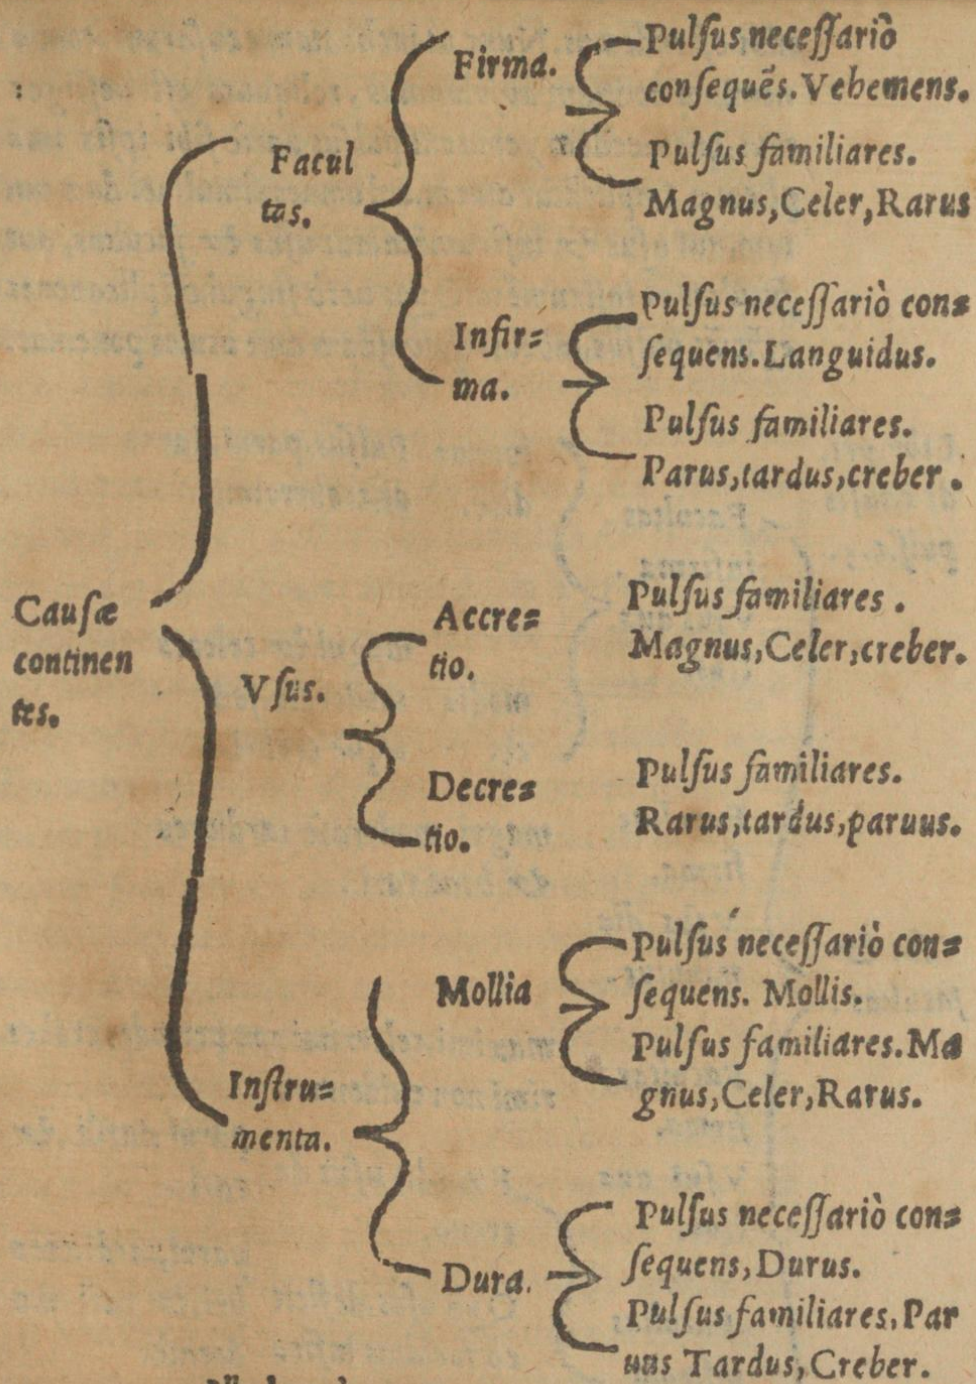 Firma.
Pulſus neceſſariò
conſequẽs. Vehemens.
Pulſus familiares.
Magnus, Celer, Rarus
Facul
tas.
Infir=
ma.
Pulſus neceſſariò con=
ſequens. Languidus.
Pulſus familiares.
Parus, tardus, creber.
Cauſæ
continen
tes.
Vſus.
Accre=
tio.
Pulſus familiares.
Magnus, Celer, creber.
Decre=
tio.
Pulſus familiares.
Rarus, tardus, paruus.
Inſtru=
menta.
Mollia
Pulſus neceſſariò con=
ſequens. Mollis.
Pulſus familiares. Ma
gnus, Celer, Rarus.
Dura.
Pulſus neceſſariò con=
ſequens, Durus.
Pulſus familiares, Par
uus Tardus, Creber.